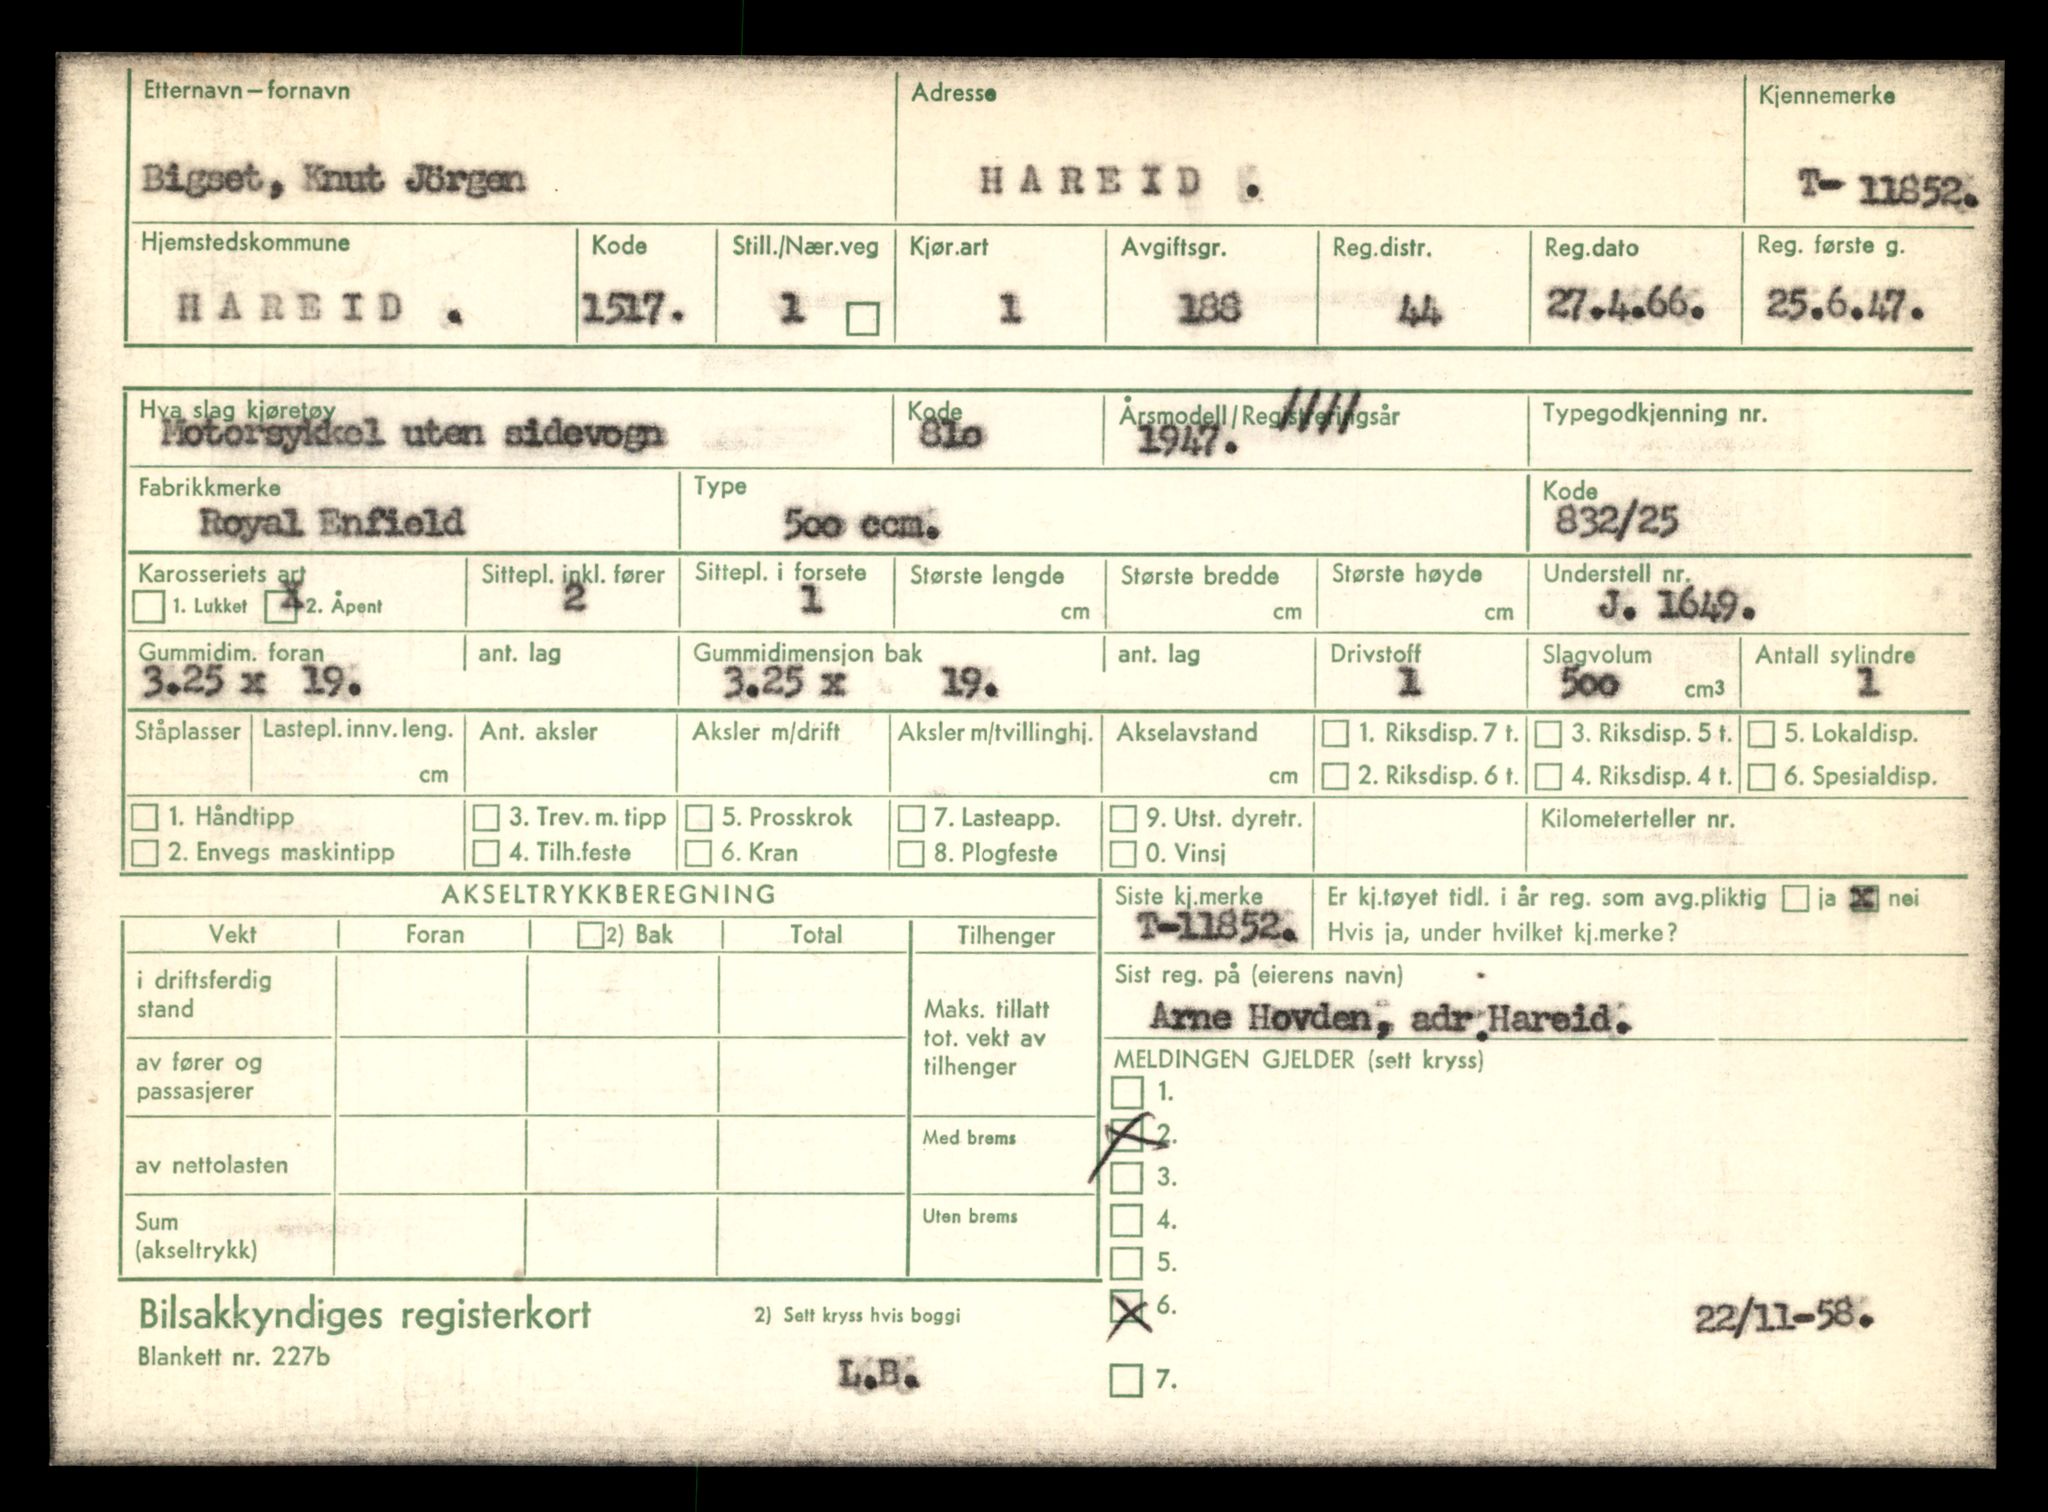 Etternavn – fornavn Adresse Kjennemerke
Bigset, Knut Jörgen H A R E I D . T- 11852.
Hjemstedskommune Kode Still./Nær.veg Kjør.art Avgiftsgr. Reg.distr. Reg.dato Reg. første g.
H A R E I D . 1517. 1 1 188 44 27.4.66. 25.6.47.
Hva slag kjøretøy Kode Årsmodell/Registreringsår Typegodkjenning nr.
Motorsykkel uten sidevogn 81o 1947. ////
Fabrikkmerke Type Kode
Royal Enfield 5oo ccm. 832/25
Karosseriets art Sittepl. inkl. fører Sittepl. i forsete Største lengde Største bredde Største høyde Understell nr.
1. Lukket x 2. Åpent 2 1 cm cm cm J. 1649.
Gummidim. foran ant. lag Gummidimensjon bak ant. lag Drivstoff Slagvolum Antall sylindre
3.25 x 19. 3.25 x 19. 1 5oo cm3 1
Ståplasser Lastepl. innv. leng. Ant. aksler Aksler m/drift Aksler m/tvillinghj. Akselavstand 1. Riksdisp. 7 t. 3. Riksdisp. 5 t. 5. Lokaldisp.
cm cm 2. Riksdisp. 6 t. 4. Riksdisp. 4 t. 6. Spesialdisp.
1. Håndtipp 3. Trev. m. tipp 5. Prosskrok 7. Lasteapp. 9. Utst. dyretr. Kilometerteller nr.
2. Envegs maskintipp 4. Tilh.feste 6. Kran 8. Plogfeste 0. Vinsj
AKSELTRYKKBEREGNING Siste kj.merke Er kj.tøyet tidl. i år reg. som avg.pliktig ja x nei
T-11852. Hvis ja, under hvilket kj.merke?
Vekt Foran 2) Bak Total Tilhenger
Sist reg. på (eierens navn)
i driftsferdig
stand
Maks. tillatt
tot. vekt av
tilhenger
Arne Hovden, adr.Hareid.
av fører og
passasjerer
MELDINGEN GJELDER (sett kryss)
1.
Med brems
x 2.
av nettolasten
3.
Sum
(akseltrykk)
Uten brems
4.
5.
Bilsakkyndiges registerkort 2) Sett kryss hvis boggi x 6. 22/11-58.
Blankett nr. 227b
L.B.
7.